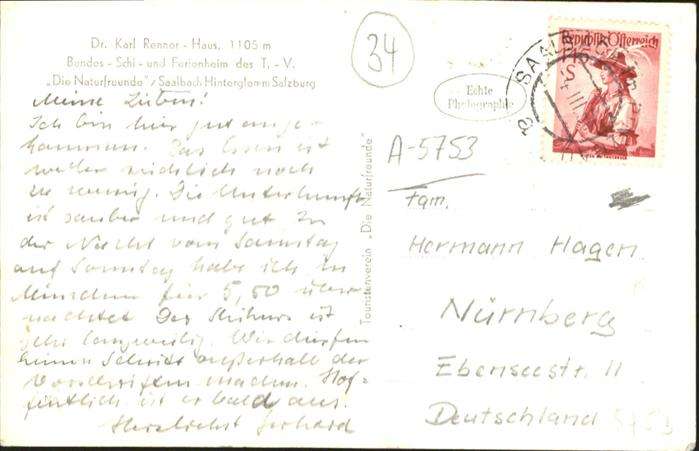 Dr. Karl Renner - Haus, 1105 m
Bundes - Schi - und Ferienheim des T. - V.
„Die Naturfreunde" / Saalbach Hinterglemm Salzburg
Meine Lieben!
Ich bin hier gut ange-
kommen. Das Essen ist
weder reichlich noch
zu wenig. Die Unterkunft
ist sauber und gut In
der Nacht vom Samstag
auf Sonntag habe ich in
München für 5,50 über-
nachtet Der Skikurs ist
sehr langweilig. Wir dürfen
keinen Schritt außerhalb der
Vorschriften machen. Hof-
fentlich ist er bald aus.
Herzlichst Gerhard
Touristenverein „Die Naturfreunde"
34
Echte
Photographie
Republik Österreich
SAALBACH
A-5753
Fam.
Hermann Hagen
Nürnberg
Ebenseestr. 11
Deutschland
5753